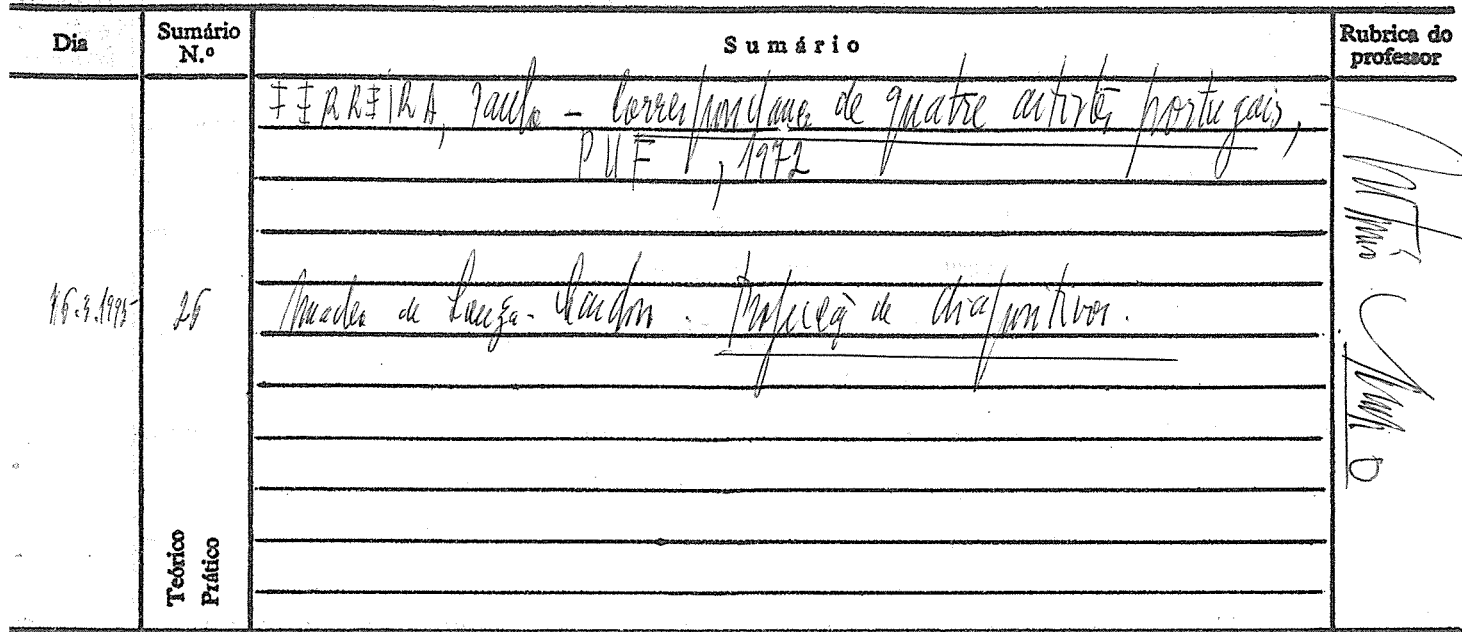 Dia
Sumário N.º
Sumário
Rubrica do professor
FERREIRA, Paulo - Correspondance de quatre artistes portugais,
PUF, 1972
16.3.1995
26
Amadeo de Souza-Cardoso. Projecção de diapositivos.
Teórico
Prático